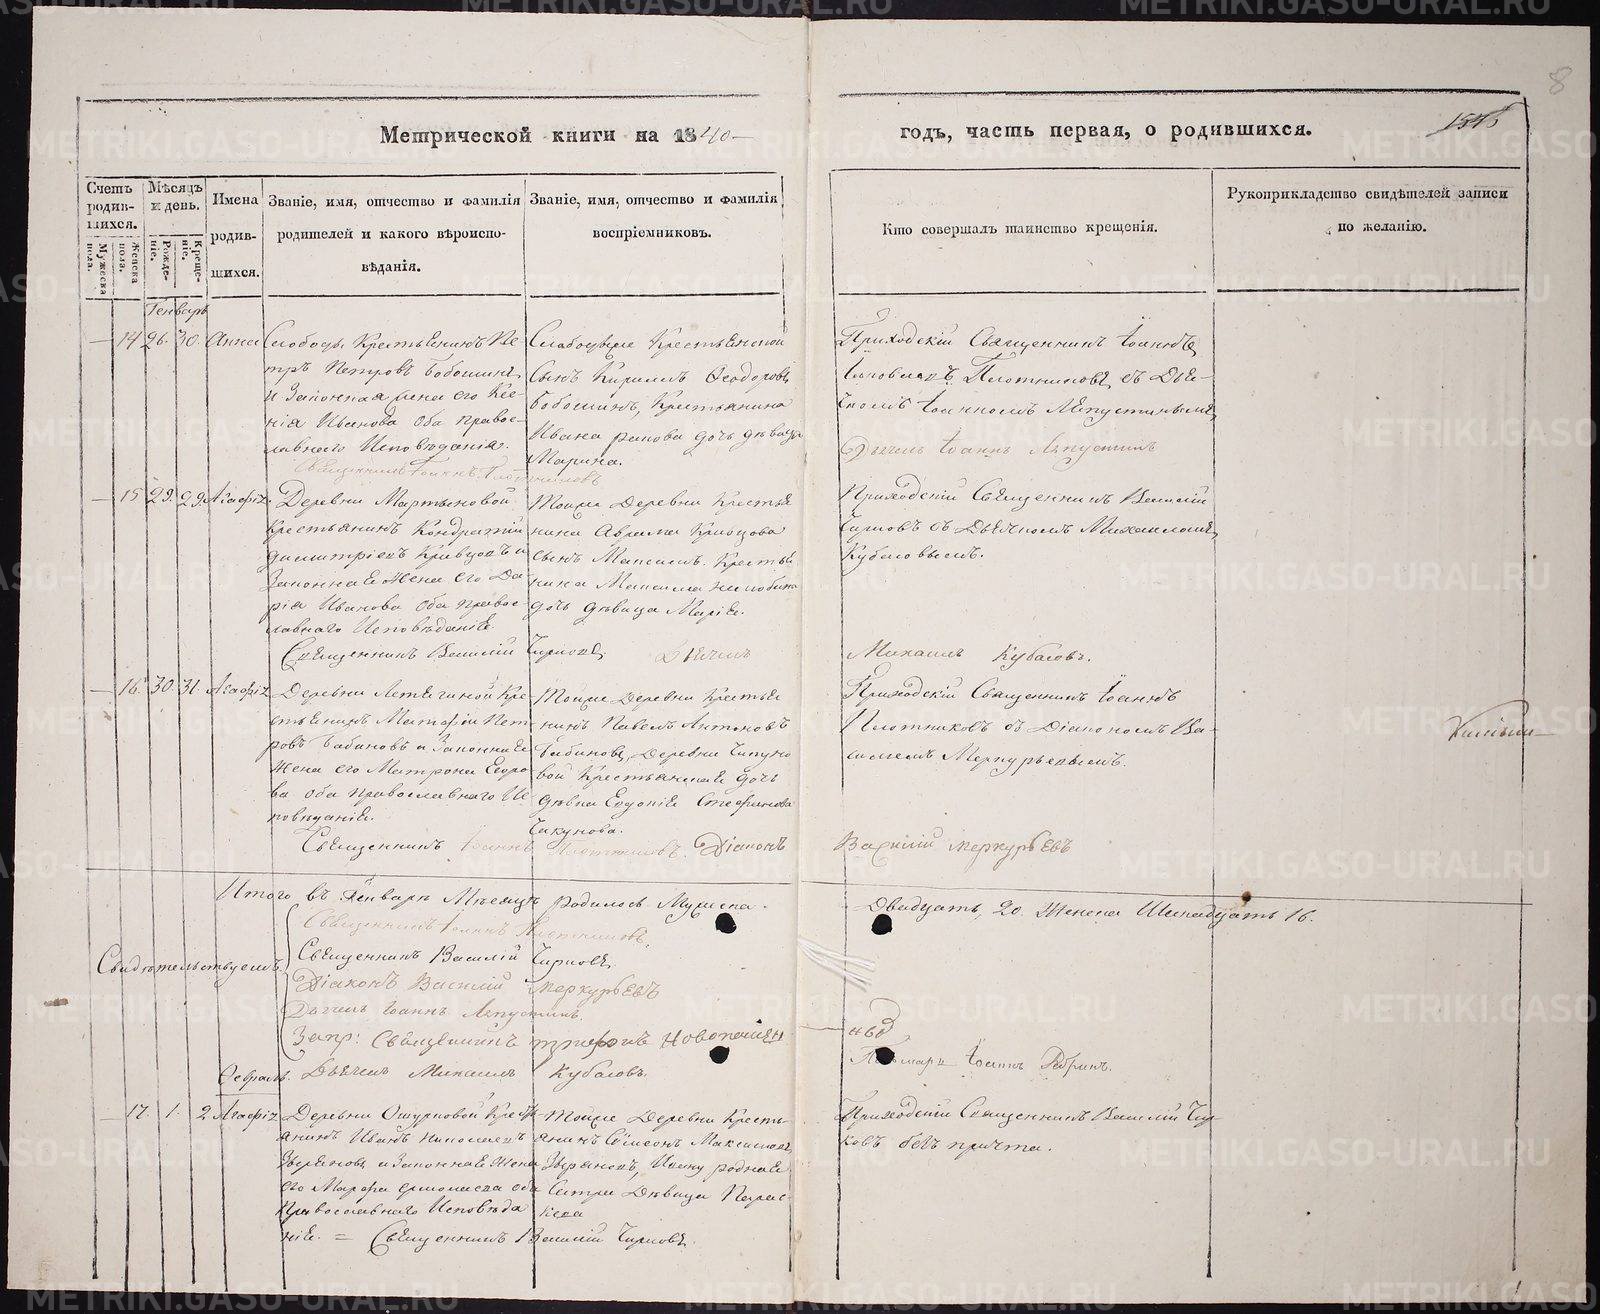 8
1545
Метрической книги на 1840 годъ, часть первая, о родившихся.
Счетъ родившихся.
Мужеска пола.
Женска пола.
Мѣсяцъ и день.
Рожденіе.
Крещеніе.
Имена родившихся.
Званіе, имя, отчество и фамилія родителей и какого вѣроисповѣданія.
Званіе, имя, отчество и фамилія воспріемниковъ.
Кто совершалъ таинство крещенія.
Рукоприкладство свидѣтелей записи по желанію.
Генварь
— 14 26. 30. Анна
Слободы Крестьянинъ Пе-
тръ Петровъ Бобошинъ
и Законная жена его Ксе-
нія Иванова оба Право-
славнаго Исповѣданія.
Крестьянской
Сынъ Кириллъ Ѳеодоровъ
Бобошинъ, Крестьянина
Ивана дочь дѣвица
Марина.
Приходскій Священникъ Іоаннъ
Плотниковъ съ Дья-
чкомъ Іоанномъ Лепустинымъ
Священникъ Іоаннъ Плотниковъ
Дьячекъ Іоаннъ Лепустинъ
— 15 29. 29. Агафія
Деревни Мартыновой
Крестьянинъ Кондратій
Димитріевъ Кривцовъ и
Законная Жена его Да-
рія Иванова оба право-
славнаго Исповѣданія.
Тойже Деревни Крестья
нина Аврама Кривцова
сынъ Максимъ. Крестья
нина Максима
дочь дѣвица Марія.
Приходскій Священникъ Василій
Чирковъ съ Дьячкомъ Михаиломъ
Кубасовымъ.
Священникъ Василій Чирковъ. Дьячекъ Михаилъ Кубасовъ.
— 16. 30. 31. Агафія
Деревни Кре-
стьянинъ Матфій Пет-
ровъ Бабиновъ и Законная
Жена его Матрона Егоро-
ва оба Православнаго Ис-
повѣданія.
Тойже Деревни Крестья
нинъ Павелъ Антоновъ
Бабиновъ, Деревни Чакуно
вой Крестьянская дочь
дѣвка Евдокія Стефанова
Чакунова.
Приходскій Священникъ Іоаннъ
Плотниковъ съ Діакономъ Ва-
силіемъ Меркурьевымъ.
Священникъ Іоаннъ Плотниковъ. Діаконъ Василій Меркурьевъ
Итого въ Генварѣ Мѣсяцѣ родилось Мужеска. Двадцать, 20. Женска Шеснадцать 16.
Свидѣтельствуемъ.
Священникъ Іоаннъ Плотниковъ.
Священникъ Василій Чирковъ
Діаконъ Василій Меркурьевъ
Дьячекъ Іоаннъ Лепустинъ.
Священникъ Новопашен
Дьячекъ Михаилъ Кубасовъ.
Іоаннъ
Февраль.
— 17. 1. 2 Агафія
Деревни Ошурковой Кресть-
янинъ Иванъ Николаевъ
Звѣряновъ и Законная Жена
его Марфа Ермолаева оба
Православнаго Исповѣда
нія. = Священникъ Василій Чирковъ.
Тойже Деревни Кресть-
янинъ Сѵмеонъ Максимовъ
Звѣряновъ, Ивану родная
Сестра Дѣвица Парас-
кева
Приходскій Священникъ Василій Чир-
ковъ безъ причта.
METRIKI.GASO-URAL.RU